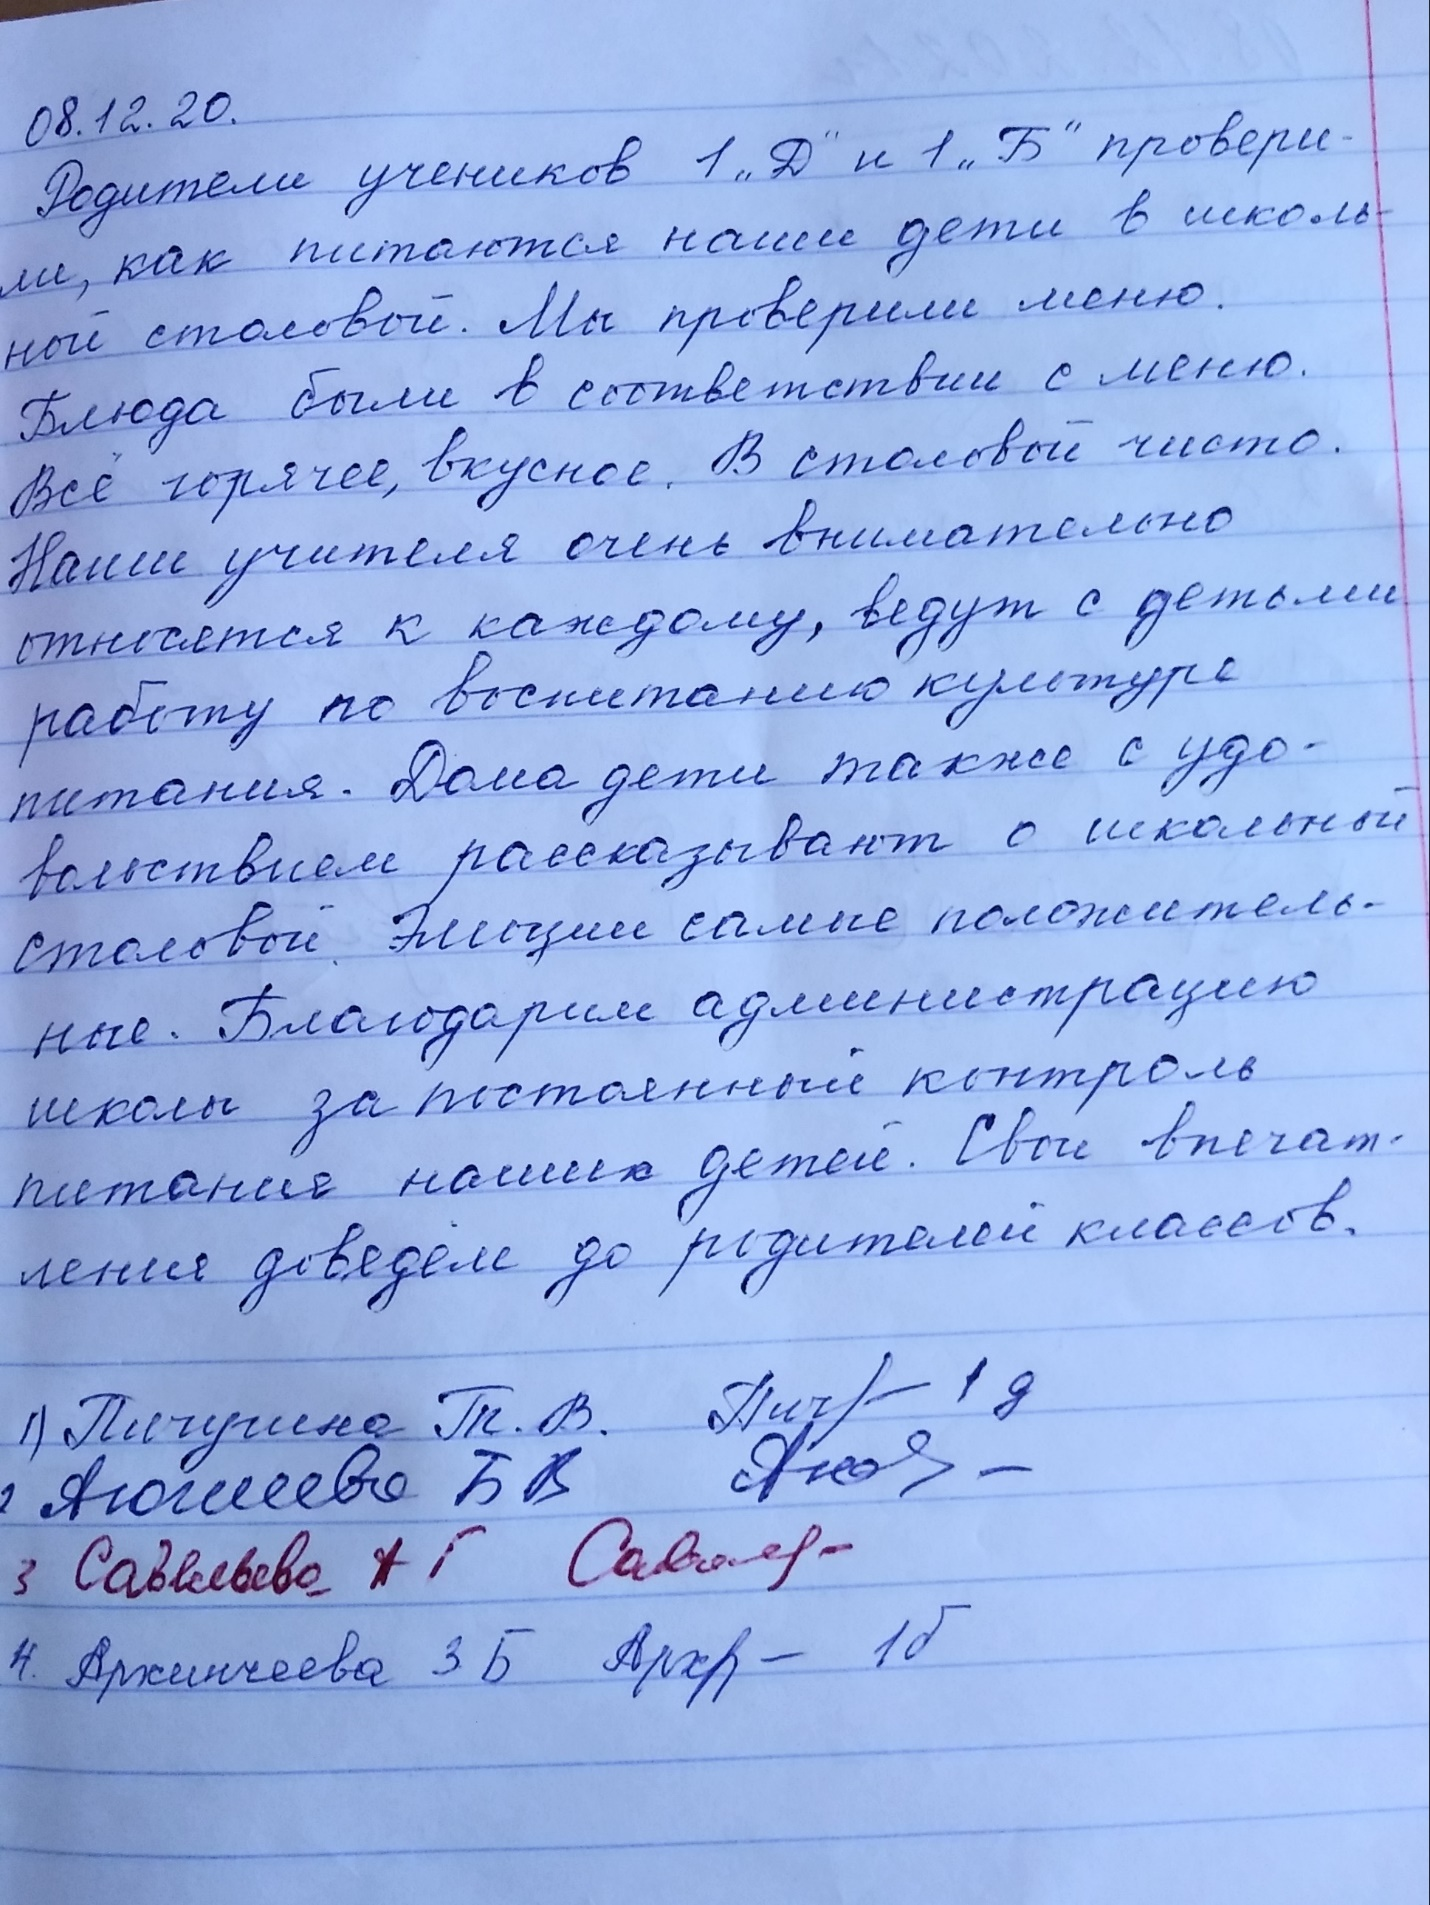 08.12.20.
Родители учеников 1 „Д" и 1 „Б" провери-
ли, как питаются наши дети в школь-
ной столовой. Мы проверили меню.
Блюда были в соответствии с меню.
Всё горячее, вкусное. В столовой чисто.
Наши учителя очень внимательно
относятся к каждому, ведут с детьми
работу по воспитанию культуре
питания. Дома дети также с удо-
вольствием рассказывают о школьный
столовой. Эмоции самые положитель-
ные. Благодарим администрацию
школы за постоянный контроль
питания наших детей. Свои впечат-
ления доведём до родителей классов.
1) Пичугина Т. В. Пич 1 д
2 Аюшеева Б В Аюш
3 Савельева А Г
4. Архинчеева З Б Арх 1б